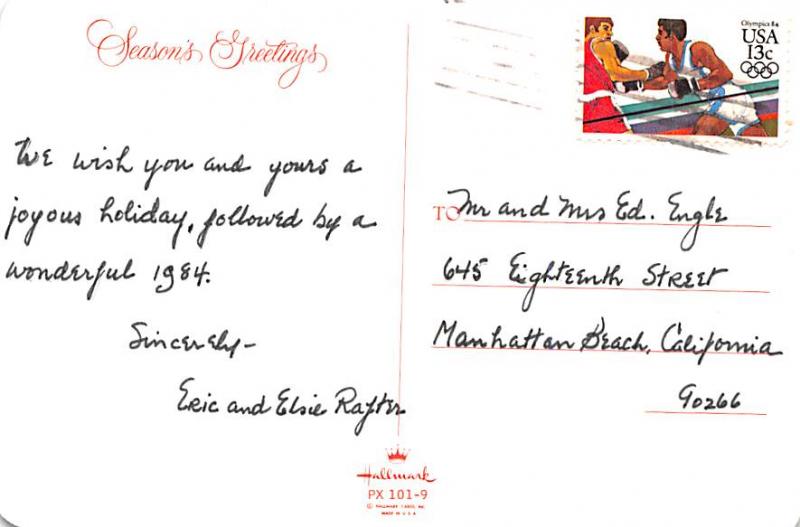 Season's Greetings
We wish you and yours a
joyous holiday, followed by a
wonderful 1984.
Sincerely-
Eric and Elsie Rafter
Olympics 84
USA
13c
TO Mr and Mrs Ed. Engle
645 Eighteenth Street
Manhattan Beach, California
90266
Hallmark
PX 101-9
© HALLMARK CARDS, INC.
MADE IN U.S.A.